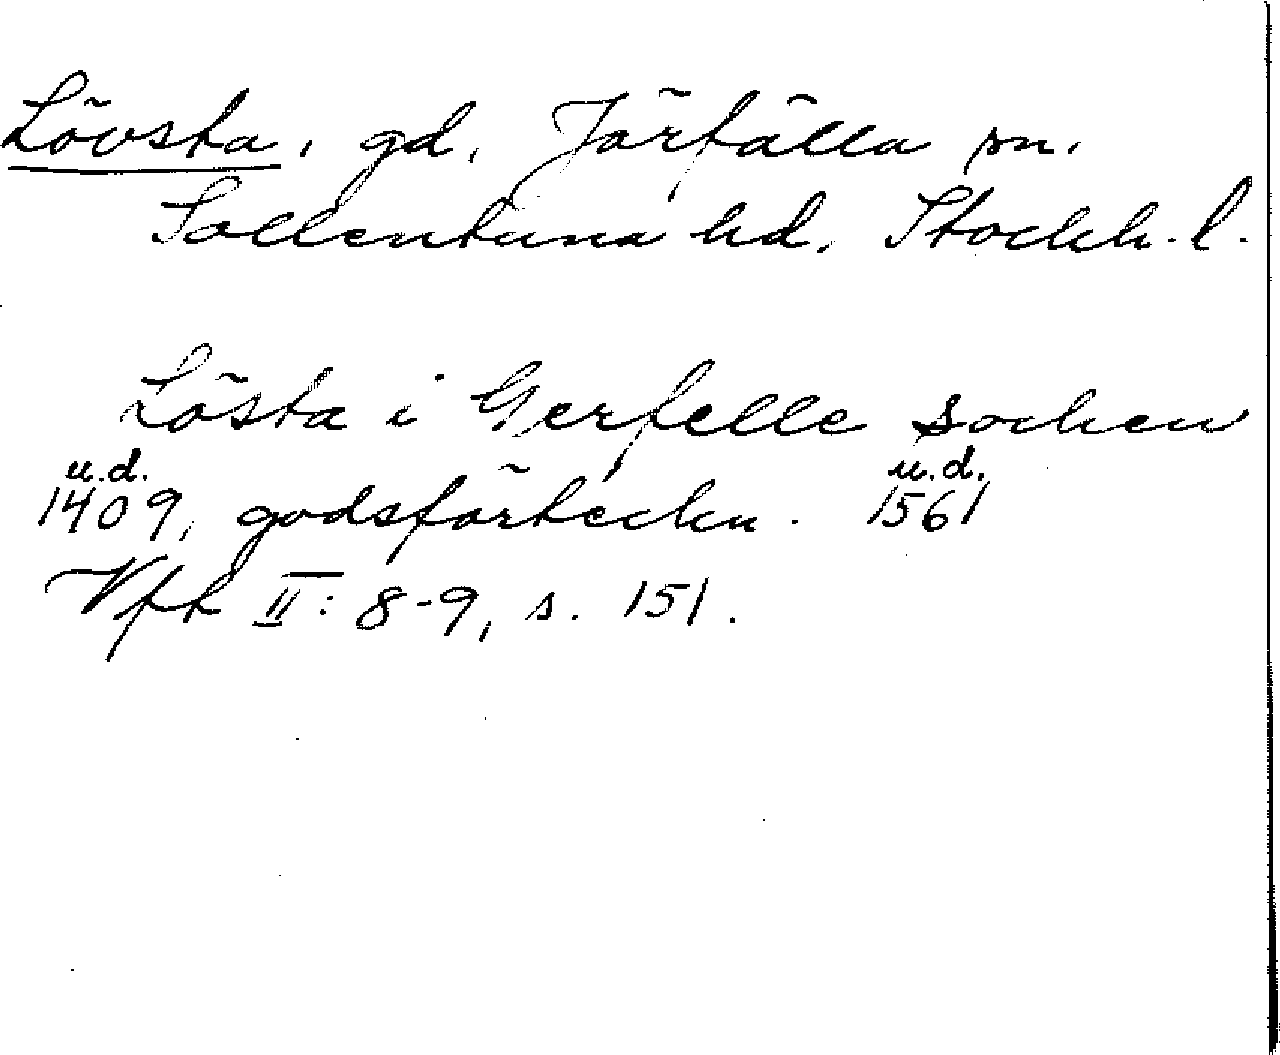 Lövsta, gd, Järfälla sn.
Sollentuna hd, Stockh. l.
Lösta i Gerfelle socken
u.d. u.d.
1409, godsförteckn. 1561
Vfk II: 8-9, s. 151.